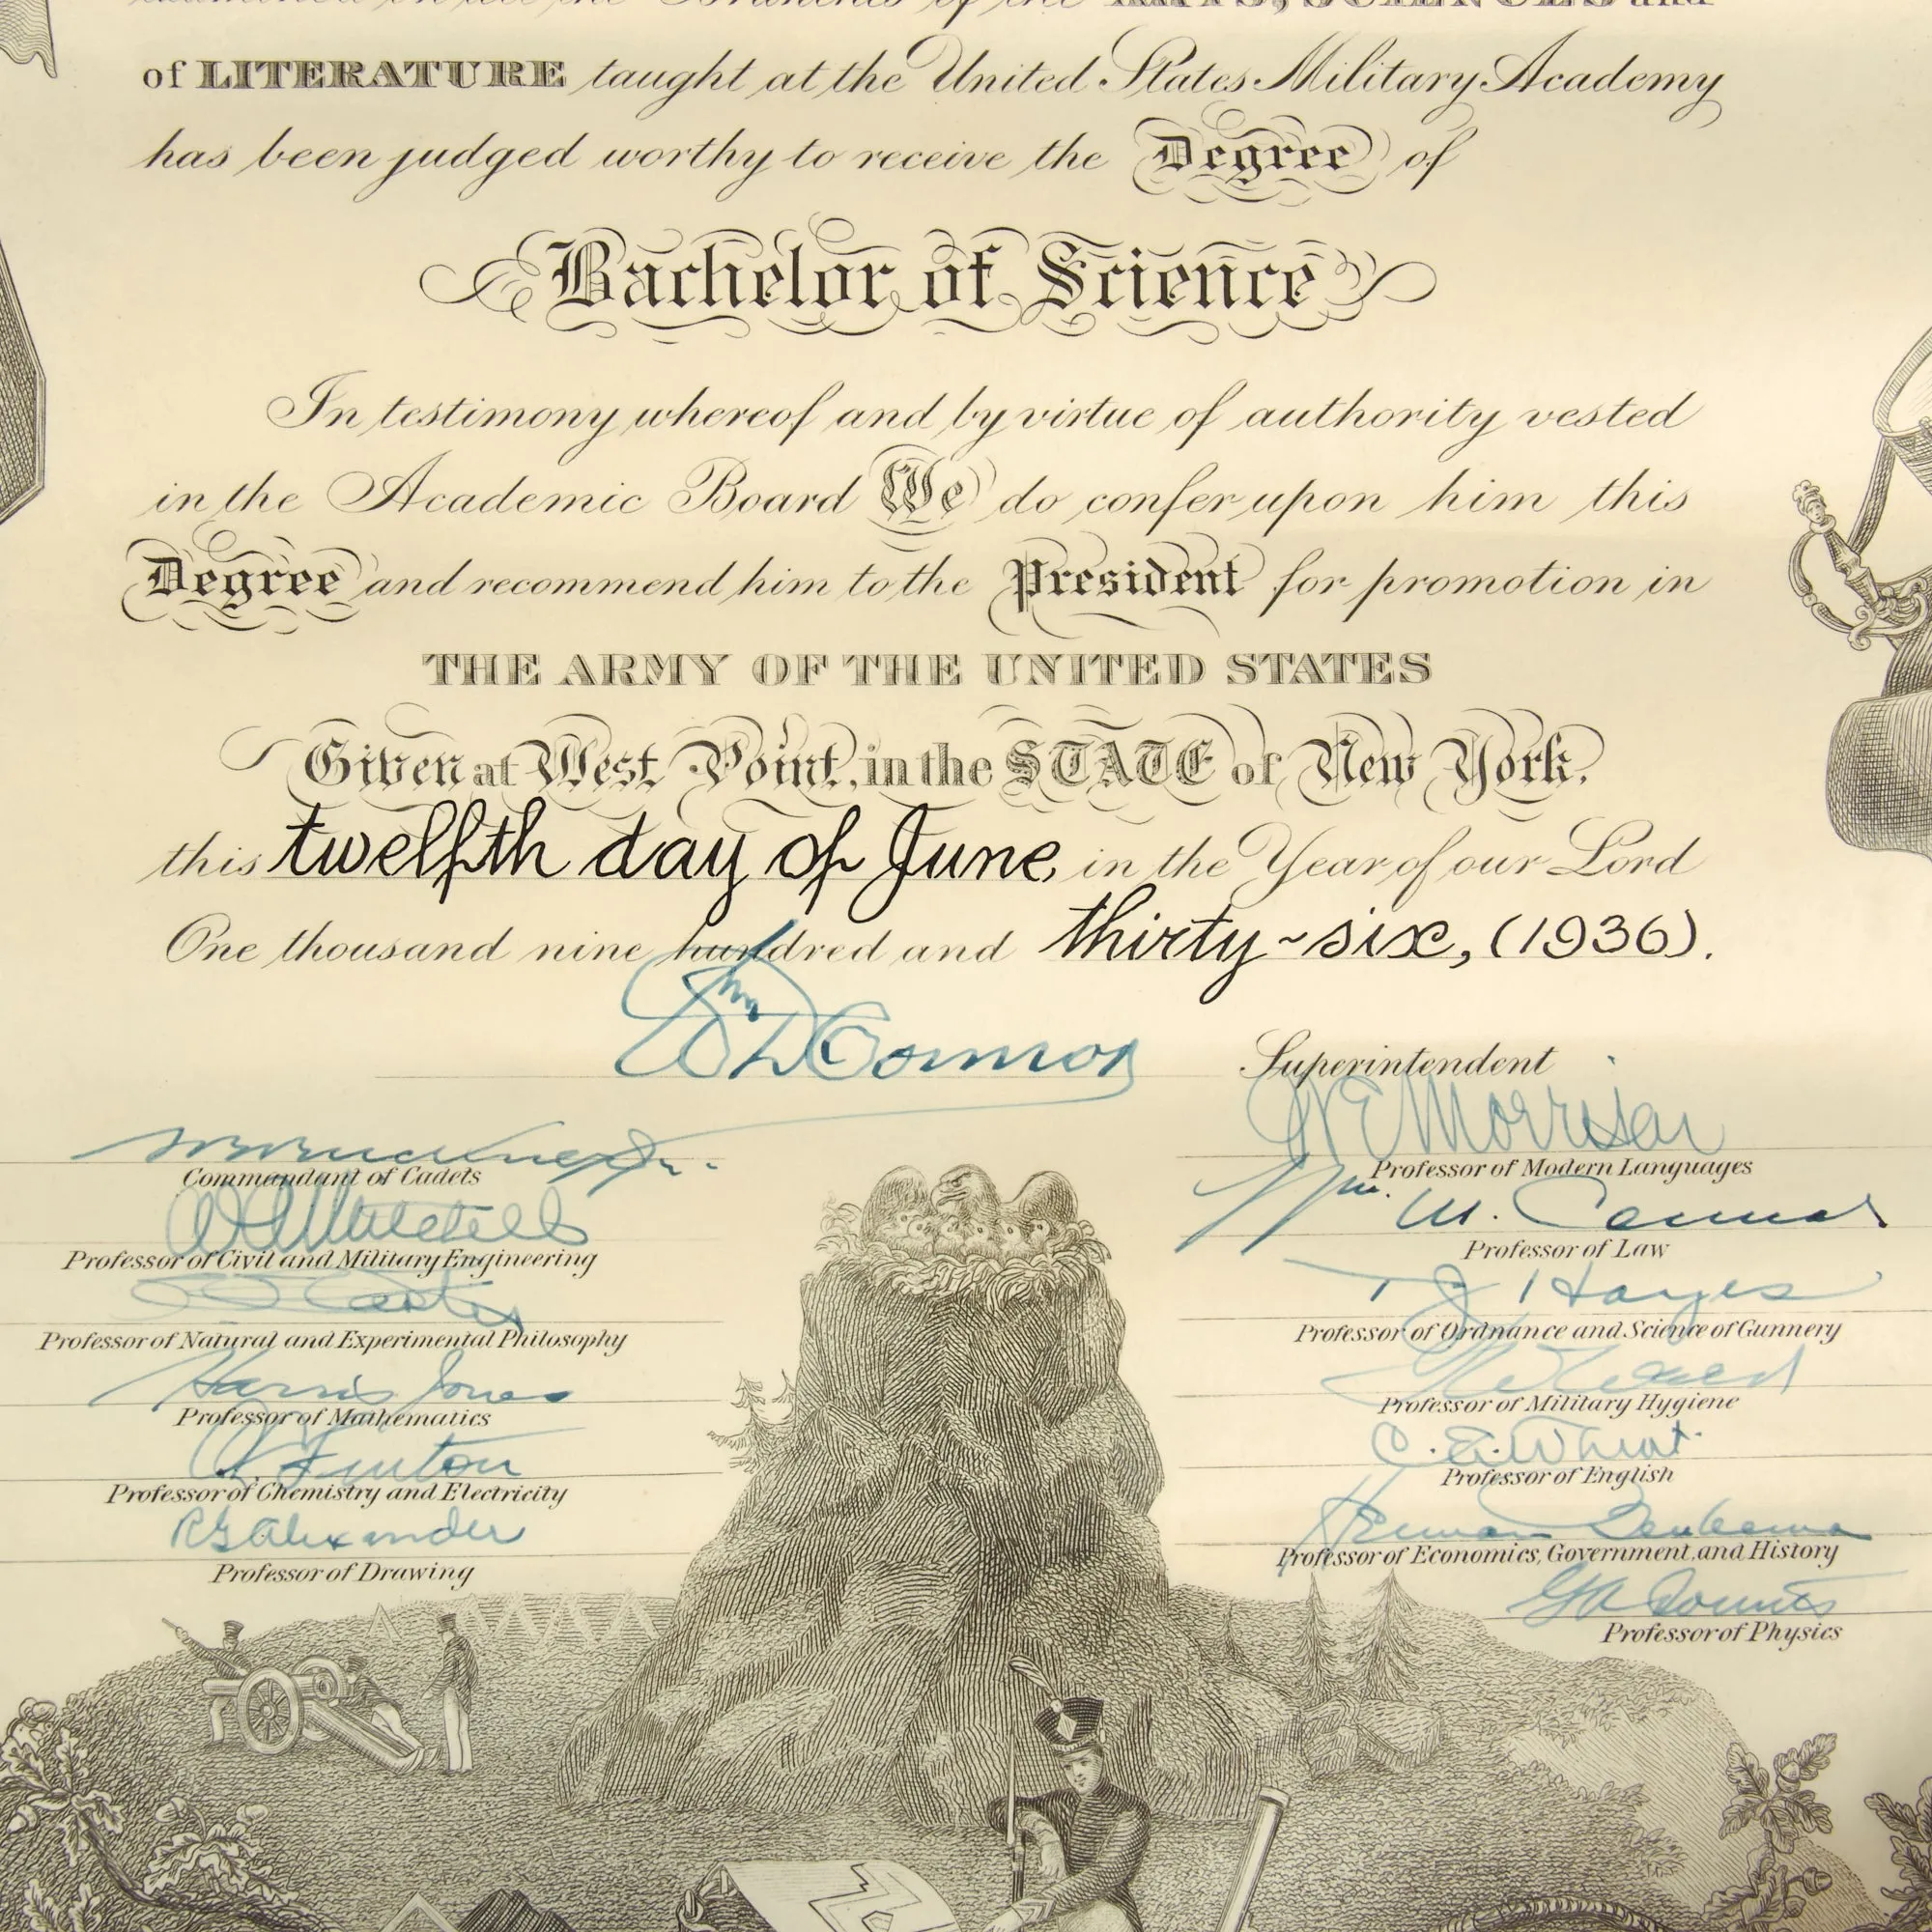 of the ARTS, SCIENCES and
of LITERATURE taught at the United States Military Academy
has been judged worthy to receive the Degree of
Bachelor of Science
In testimony whereof and by virtue of authority vested
in the Academic Board We do confer upon him this
Degree and recommend him to the President for promotion in
THE ARMY OF THE UNITED STATES
Given at West Point, in the STATE of New York,
this twelfth day of June, in the Year of our Lord
One thousand nine hundred and thirty~six, (1936).
Wm D Connor
Superintendent
Commandant of Cadets
Professor of Civil and Military Engineering
Professor of Natural and Experimental Philosophy
Harris Jones
Professor of Mathematics
Fenton
Professor of Chemistry and Electricity
RG Alexander
Professor of Drawing
WE Morrison
Professor of Modern Languages
Wm. M. Connor
Professor of Law
T J Hayes
Professor of Ordnance and Science of Gunnery
Professor of Military Hygiene
C. E. Wheat
Professor of English
Herman Beukema
Professor of Economics, Government and History
GA Counts
Professor of Physics